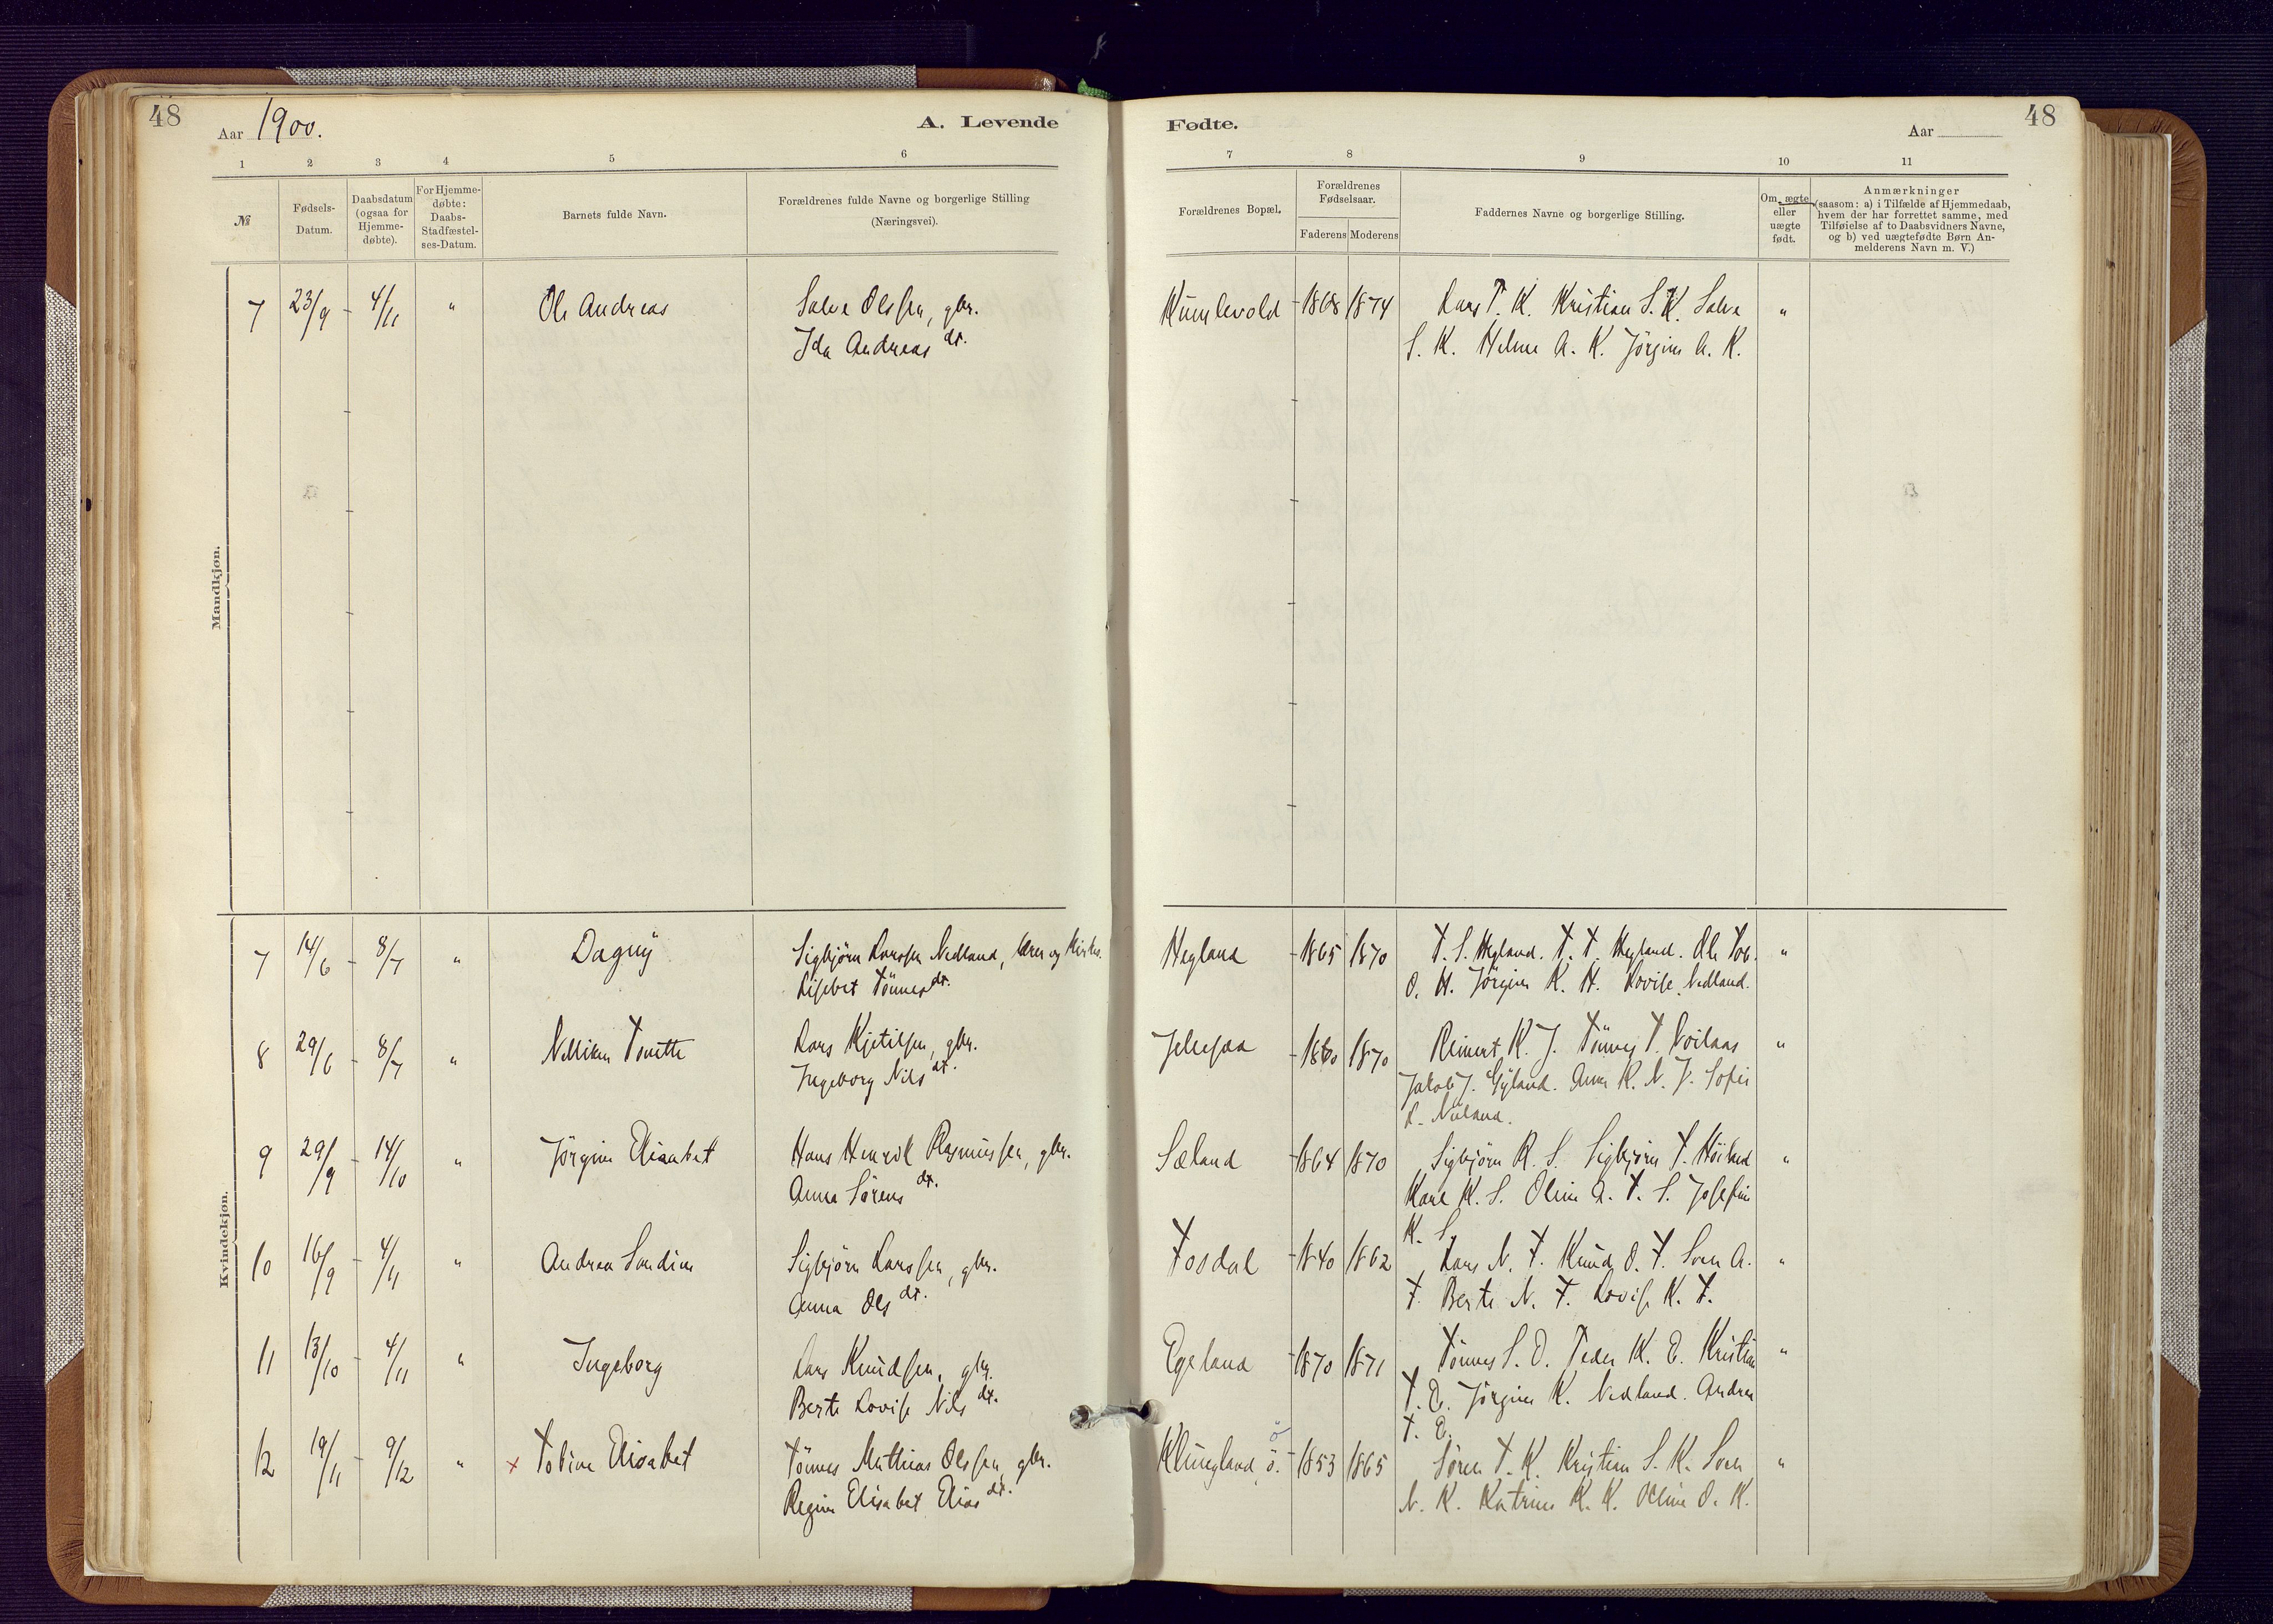 48
Aar 1900.
A. Levende
1 2 3 4 5 6
№
Fødsels-
Datum.
Daabsdatum
(ogsaa for
Hjemme-
døbte).
For Hjemme-
døbte:
Daabs-
Stadfæstel-
ses-Datum.
Barnets fulde Navn.
Forældrenes fulde Navne og borgerlige Stilling
(Næringsvei).
Mandkjøn.
7 23/9 - 4/11 " Ole Andreas Salve Olssen, gbr.
Ida Andreas dt.
Kvindekjøn.
7 14/6 - 8/7 " Dagny Sigbjörn Larssen Nedland, lærer og
Lisebet Tönnes dt.
8 29/6 - 8/7 " Nelliken Tonette Lars Kjetilsen, gbr.
Ingeborg Nils dt.
9 29/9 - 14/10 " Jörgine Elisabet Hans Henrik Rasmussen, gbr.
Anna Sörens dt.
10 16/9 - 4/11 " Andrea Sondine Sigbjörn Larssen, gbr.
Anna Ols dt.
11 13/10 - 4/11 " Ingeborg Lars Knudsen, gbr.
Berte Lovise Nils dt.
12 19/11 - 9/12 " x Tobine Elisabet Tönnes Mathias Olssen, gbr.
Regine Elisabet Elias dt.
Fødte.
Aar
48
7 8 9 10 11
Forældrenes Bopæl.
Forældrenes
Fødselsaar.
Faderens Moderens
Faddernes Navne og borgerlige Stilling.
Om ægte
eller
uægte
født.
Anmærkninger
(saasom: a) i Tilfælde af Hjemmedaab,
hvem der har forrettet samme, med
Tilføielse af to Daabsvidners Navne,
og b) ved uægtefødte Børn An-
melderens Navn m. V.)
Kumlevold - 1868 1874 Lars T. K. Kristian S. K. Salve "
S. K. Helene A. K. Jörgine A. K.
Hegland - 1865 1870 T. S. Hegland. T. T. Hegland. Ole Tob. "
O. H. Jörgine K. H. Lovise Nedland.
1860 1870 Reinert K. J. Tönnes T. "
Jakob J. Gyland. Anna K. N. J. Sofie
Sæland - 1864 1870 Sigbjörn R. S. Sigbjörn T. Höiland "
Karl K. S. Oline A. T. S. Josefine
K. S.
Tosdal - 1840 1862 Lars N. T. Knud O. T. Sven A. "
T. Berte N. T. Lovise K. T.
Egeland - 1870 1871 Tönnes S. O. Peder K. E. Kristian "
T. E. Jörgine K. Nedland. Andrea
T. E.
Klungland, ö. - 1853 1865 Sören T. K. Kristian S. K. Sven "
N. K. Katrine K. K. Oline O. K.